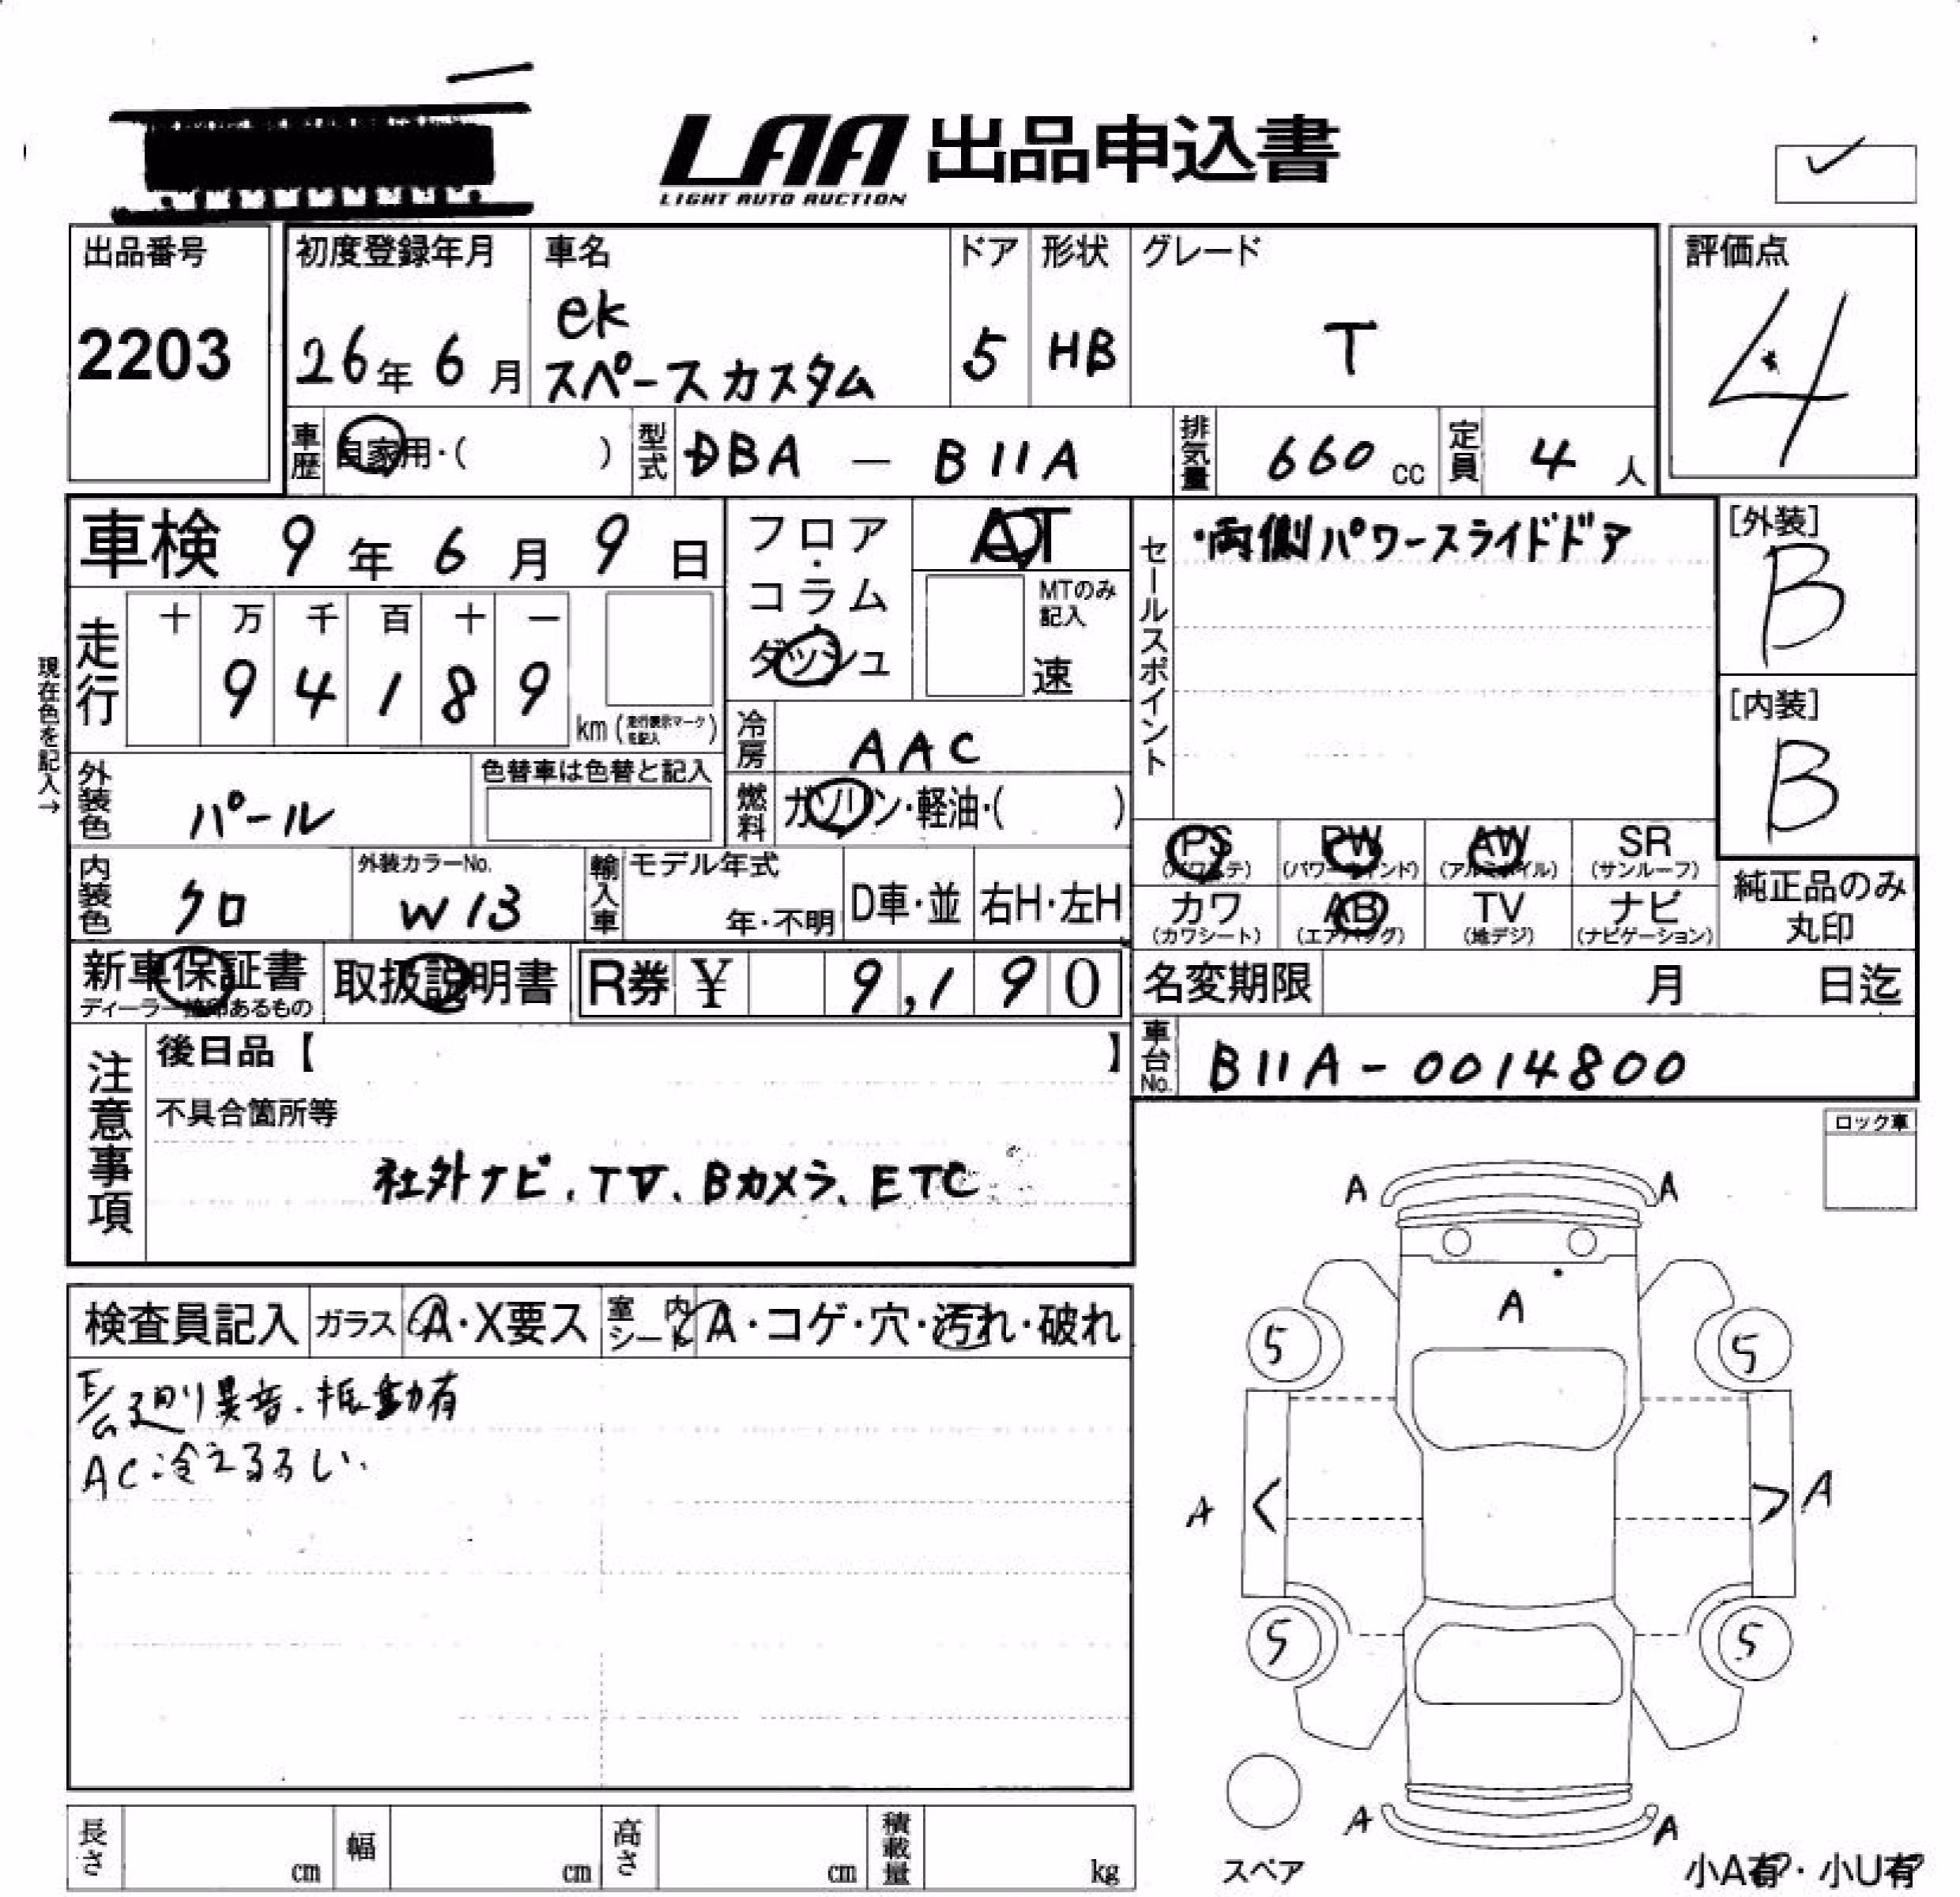 LAA 出品申込書
LIGHT AUTO AUCTION
✓
出品番号
2203
初度登録年月
26年 6月
車名
ek
スペースカスタム
ドア
5
形状
HB
グレード
T
評価点
4
車歴 自家用・( )
型式 DBA － B11A
排気量 660 cc
定員 4 人
車検 9年 6月 9日
走行
十 万 千 百 十 一
9 4 1 8 9
km (走行表示マークを記入)
現在色を記入→
フロア・コラム・ダッシュ
AT
MTのみ記入
速
セールスポイント
・両側パワースライドドア
[外装]
B
[内装]
B
冷房 AAC
燃料 ガソリン・軽油・( )
外装色 パール
色替車は色替と記入
内装色 クロ
外装カラーNo.
W13
輸入車
モデル年式
年・不明
D車・並
右H・左H
PS (パワステ)
PW (パワーウィンド)
AW (アルミホイル)
SR (サンルーフ)
カワ (カワシート)
AB (エアバッグ)
TV (地デジ)
ナビ (ナビゲーション)
純正品のみ丸印
新車保証書
ディーラー捺印あるもの
取扱説明書
R券 ¥ 9,190
名変期限 月 日迄
車台No. B11A-0014800
注意事項
後日品【 】
不具合箇所等
社外ナビ、TV、Bカメラ、ETC
ロック車
検査員記入
ガラス A・X要ス
室内シート A・コゲ・穴・汚れ・破れ
廻り異音、振動有
AC冷えるろしい
A A
A
5 5
A < > A
5 5
A A
スペア
小A有・小U有
長さ cm
幅 cm
高さ cm
積載量 kg